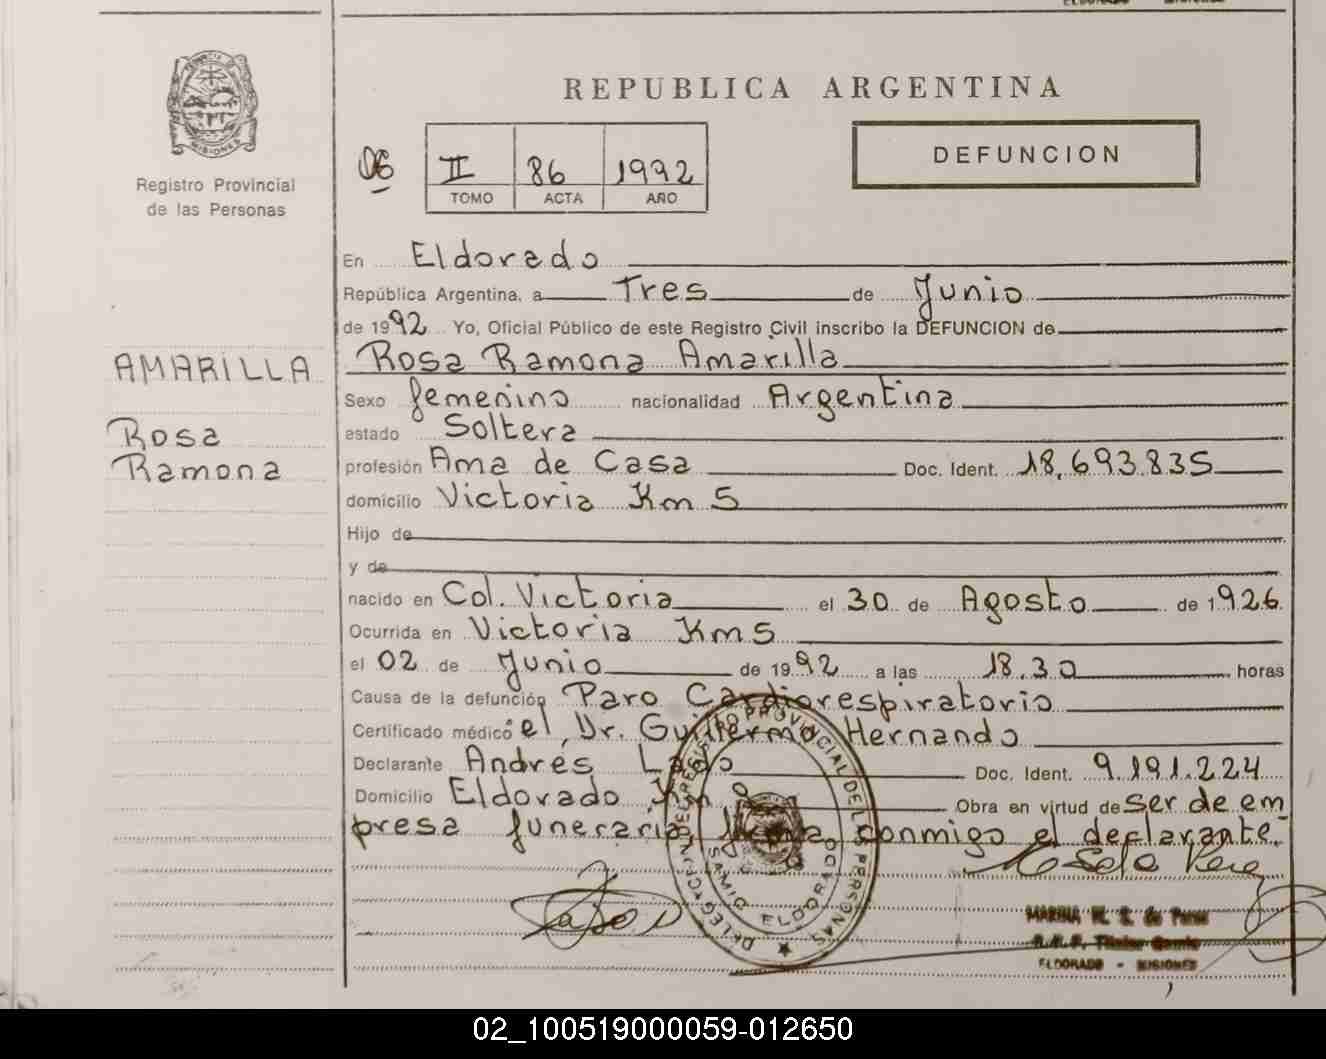 REPUBLICA ARGENTINA
PROVINCIA DE MISIONES
Registro Provincial
de las Personas
06 II 86 1992
TOMO ACTA AÑO
DEFUNCION
En Eldorado
República Argentina, a Tres de Junio
de 1992 Yo, Oficial Público de este Registro Civil inscribo la DEFUNCION de
AMARILLA
Rosa
Ramona
Rosa Ramona Amarilla
Sexo femenino nacionalidad Argentina
estado Soltera
profesión Ama de Casa Doc. Ident. 18.693.835
domicilio Victoria Km 5
Hijo de
y de
nacido en Col. Victoria el 30 de Agosto de 1926
Ocurrida en Victoria Km 5
el 02 de Junio de 1992 a las 18.30 horas
Causa de la defunción Paro Cardiorespiratorio
Certificado médico el Dr. Guillermo Hernando
Declarante Andrés Lado Doc. Ident. 9.191.224
Domicilio Eldorado Km 9 Obra en virtud de ser de em
presa funeraria firma conmigo el declarante.-
DELEGACION DEL REGISTRO PROVINCIAL DE LAS PERSONAS
ELDORADO
MARINA
ELDORADO - MISIONES
02_100519000059-012650